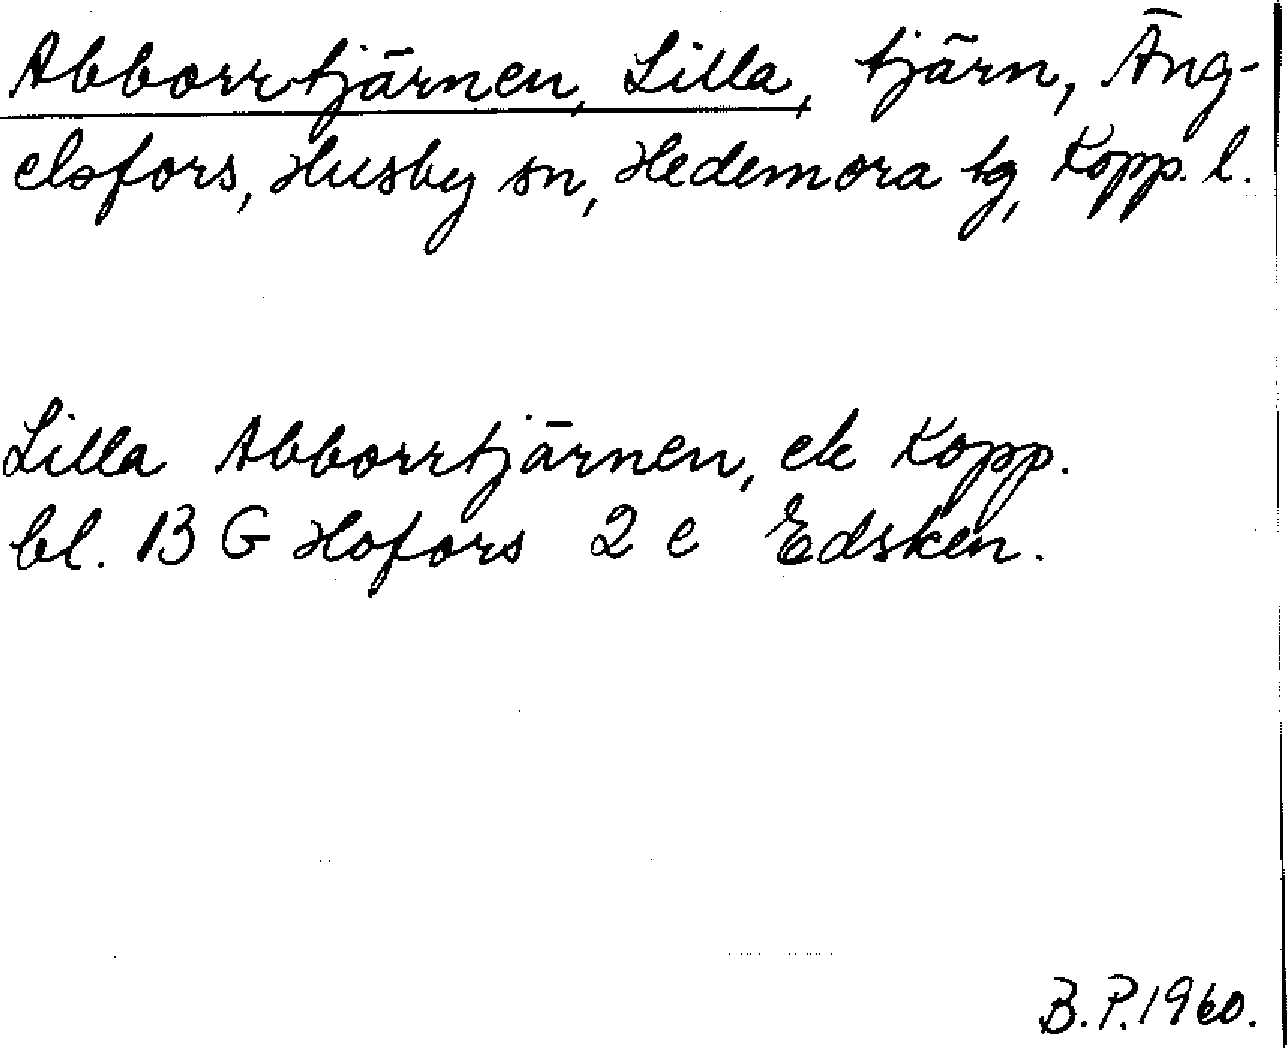 Abborrtjärnen, Lilla, tjärn, Äng-
elsfors, Husby sn, Hedemora tg, Kopp. l.
Lilla Abborrtjärnen, ek Kopp.
bl. 13 G Hofors 2 e Edsken.
B.P.1960.